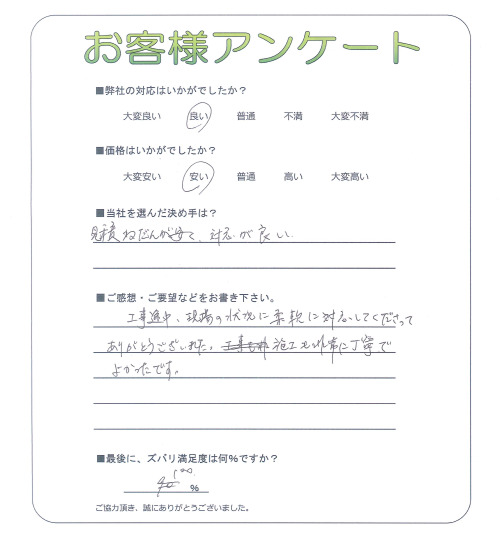 お客様アンケート
■弊社の対応はいかがでしたか？
大変良い 良い 普通 不満 大変不満
■価格はいかがでしたか？
大変安い 安い 普通 高い 大変高い
■当社を選んだ決め手は？
見積ねだんが安く、対応が良い
■ご感想・ご要望などをお書き下さい。
工事途中、現場の状況に柔軟に対応してくださって
ありがとうございました。施工も非常に丁寧で
よかったです。
■最後に、ズバリ満足度は何％ですか？
100
％
ご協力頂き、誠にありがとうございました。